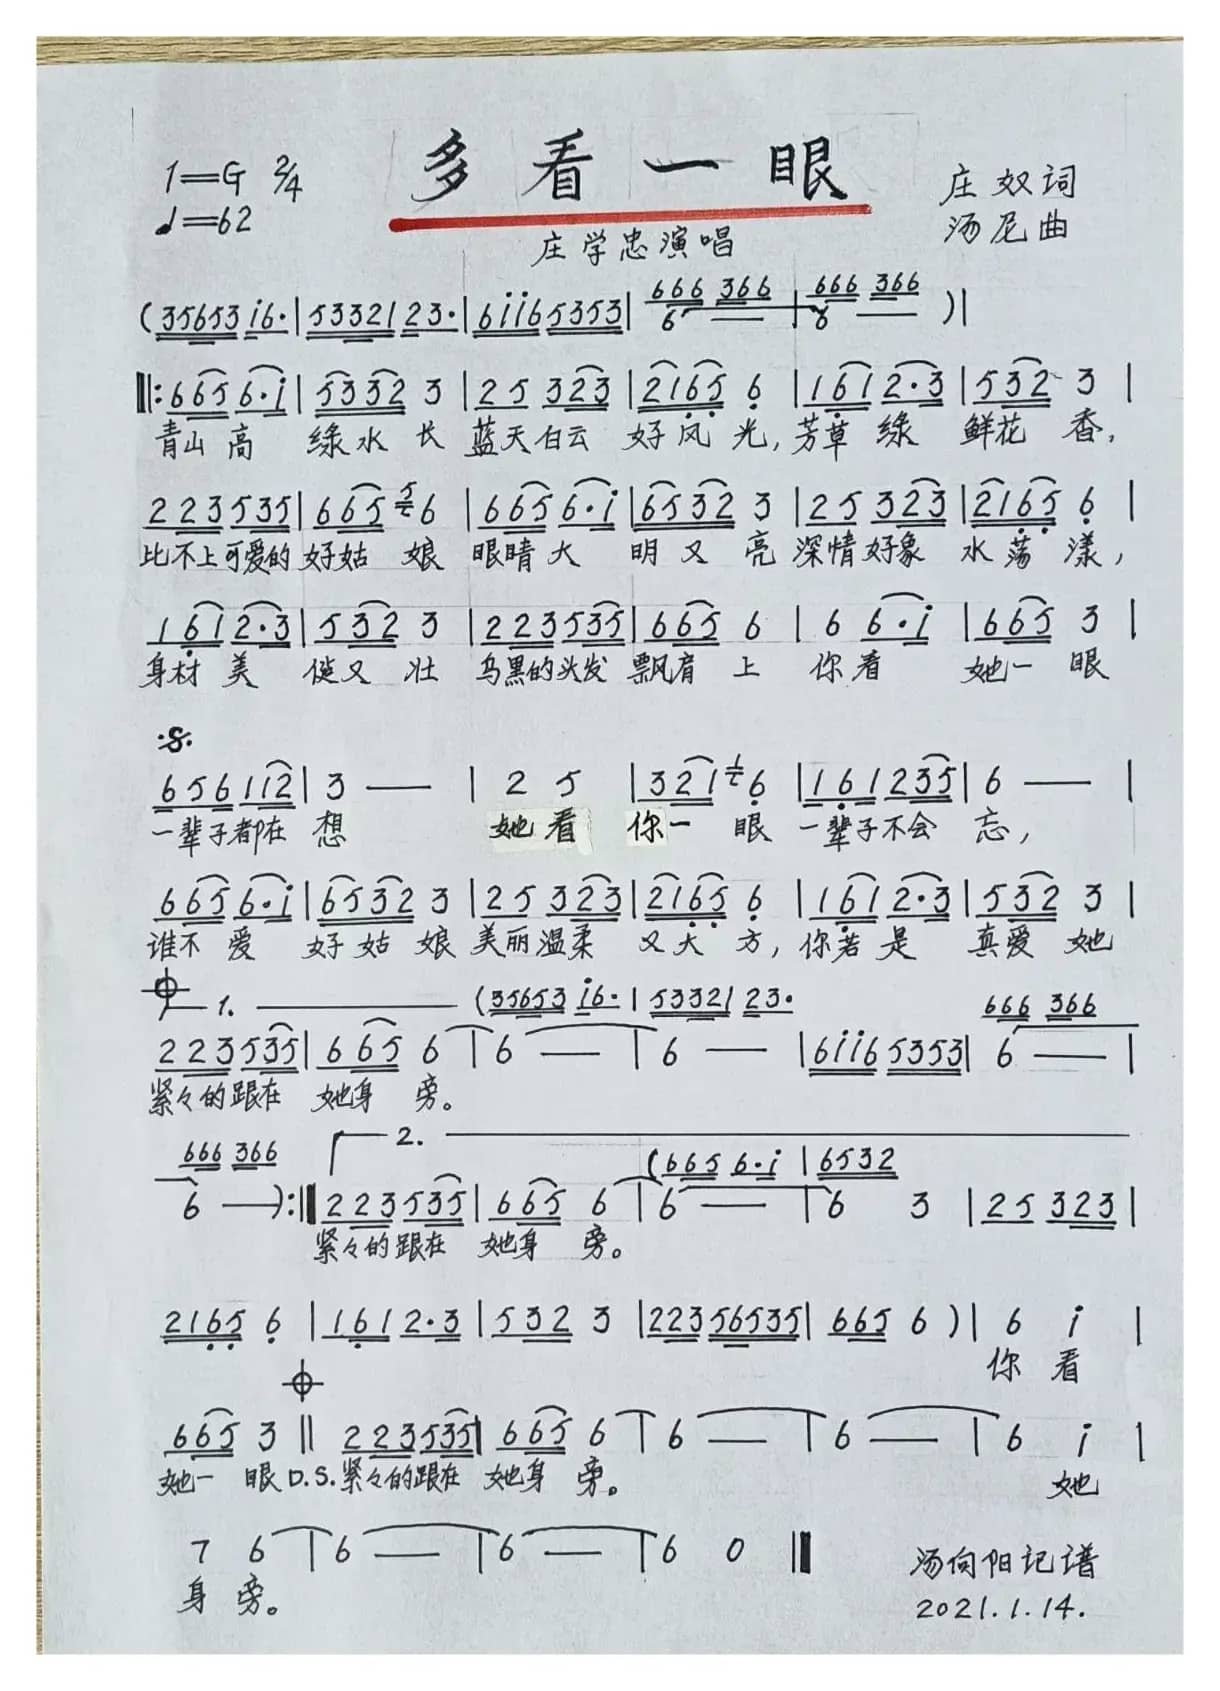 多看一眼
1=G 2/4
♩=62
庄奴词
汤尼曲
庄学忠演唱
(35653 i6·|53321 23·|6ii6 5353|666 366 6 —|666 366 6 — )|
‖:665 6·i|5332 3|25 323|2165 6|161 2·3|532 3|
青山高 绿水长 蓝天白云 好风光,芳草绿 鲜花香,
223535|665 5 6|665 6·i|6532 3|25 323|2165 6|
比不上可爱的好姑娘 眼睛大 明又亮 深情好象 水荡漾,
161 2·3|532 3|223535|665 6|6 6·i|665 3|
身材美 健又壮 乌黑的头发 飘肩上 你看 她一眼
656112|3 —|2 5|321 1 6|161235|6 —|
一辈子都在想 她看你一眼 一辈子不会忘,
665 6·i|6532 3|25 323|2165 6|161 2·3|532 3|
谁不爱 好姑娘 美丽温柔 又大方,你若是 真爱她
1. (35653 i6·|53321 23· 666 366
223535|665 6|6 —|6 —|6ii6 5353|6 —|
紧々的跟在 她身旁。
666 366 2. (665 6·i|6532
6 —):‖223535|665 6|6 —|6 3|25 323|
紧々的跟在 她身旁。
2165 6|161 2·3|532 3|223 56535|665 6 )|6 i|
你看
665 3‖223535|665 6|6 —|6 —|6 i|
她一眼D.S.紧々的跟在 她身旁。 她
7 6|6 —|6 —|6 0‖
身旁。
汤向阳记谱
2021.1.14.